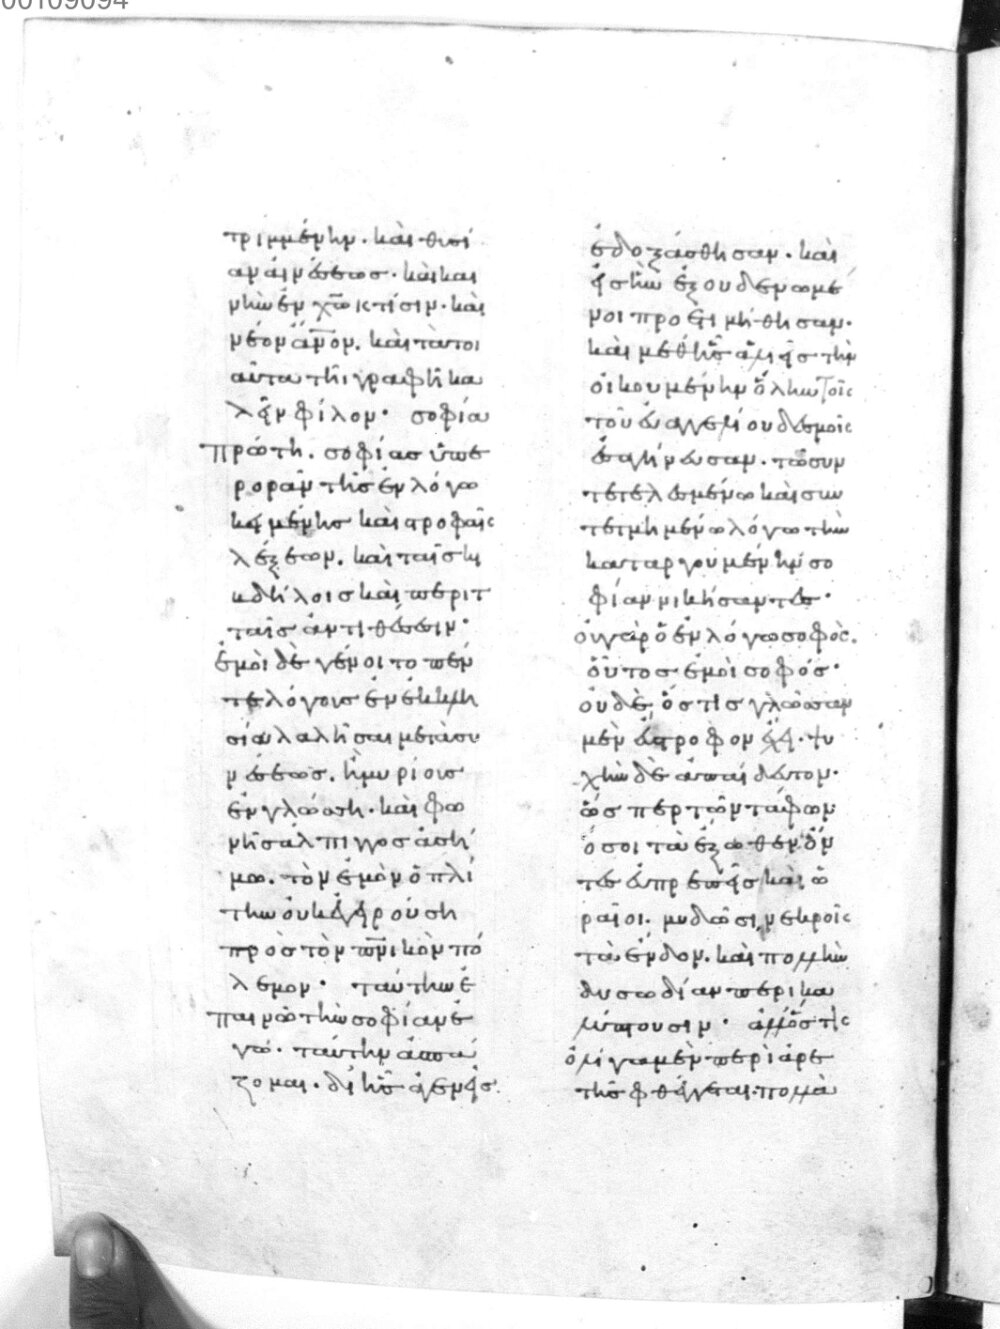 00109094
τριμμένην. καὶ θυσί
αν αἰνέσεως. καὶ και
νὴν ἐν χω κτίσιν. καὶ
νέον ἄνον. καὶ τὰ τοι
αῦτα τῆι γραφῆι κα
λεῖν φίλον· σοφία
πρώτη. σοφίας ὑπε
ρορᾶν τῆς ἐν λόγω
κειμένης καὶ στροφαῖς
λέξεων. καὶ ταῖς κι
βδήλοις καὶ περιτ
ταῖς ἀντιθέσεσιν·
ἐμοὶ δὲ γένοιτο πέν
τε λόγους ἐν ἐκκλη
σία λαλῆσαι μετὰ συ
νέσεως. ἢ μυρίους
ἐν γλώσση. καὶ φω
νῆ σάλπιγγος ἀσή
μω. τὸν ἐμὸν ὁπλί
την οὐκ ἐγειρούση
πρὸς τὸν πνικὸν πό
λεμον· ταύτην ἐ
παινῶ τὴν σοφίαν ἐ
γώ. ταύτην ἀσπά
ζομαι. δι ἧς ἀγενεῖς
ἐδοξάσθησαν. καὶ
εἰς ἣν ἐξουδενωμέ
νοι προετιμήθησαν.
καὶ μεθ ἧς ἁλιεῖς τὴν
οἰκουμένην ὅλην τοῖς
τοῦ εὐαγγελίου δεσμοῖς
ἐσαγήνευσαν. τῶ συν
τετελεσμένω καὶ συν
τετμημένω λόγω τὴν
καταργουμένην σο
φίαν νικήσαντες·
οὐ γὰρ ὁ ἐν λόγω σοφὸς.
οὗτος ἐμοὶ σοφός·
οὐδὲ ὅστις γλῶσσαν
μὲν εὔστροφον ἔχει. ψυ
χὴν δὲ ἀπαίδευτον·
ὥσπερ τῶν τάφων
ὅσοι τὰ ἔξωθεν ὄν
τες εὐπρεπεῖς καὶ ὡ
ραῖοι. μυδῶσι νεκροῖς
τὰ ἔνδον. καὶ πολλὴν
δυσωδίαν περικα
λύπτουσιν· ἀλλ ὅστις
ὀλίγα μὲν περὶ ἀρε
τῆς φθέγγεται. πολλὰ